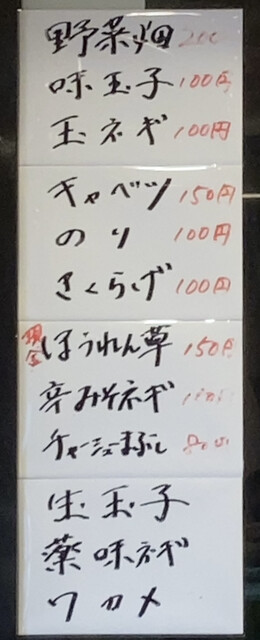 野菜畑 200
味玉子 100円
玉ネギ 100円
キャベツ 150円
のり 100円
きくらげ 100円
現金 ほうれん草 150円
辛みそネギ
チャーシューまぶし
生玉子
薬味ネギ
ワカメ